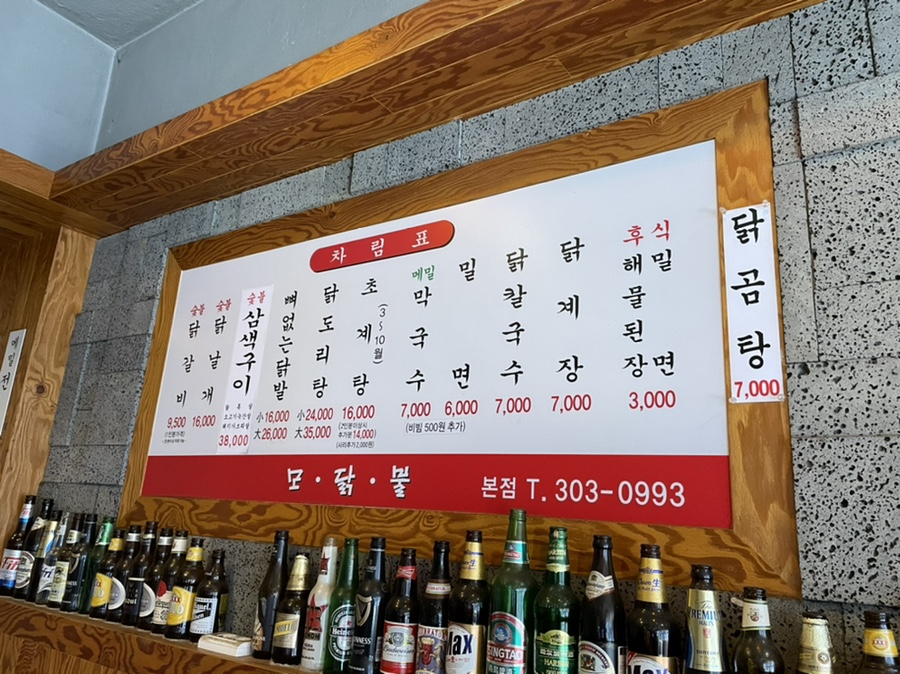 차림표
숯불 닭갈비
9,500
(1인분가격)
숯불 닭날개
16,000
숯불 삼색구이
38,000
뼈없는닭발
小 16,000
大 26,000
닭도리탕
小 24,000
大 35,000
초계탕
(3~10월)
16,000
(2인분이상시
추가분 14,000)
(사리추가 2,000원)
메밀 막국수
7,000
밀면
6,000
(비빔 500원 추가)
닭칼국수
7,000
닭계장
7,000
후식
해물된장
밀면
3,000
닭곰탕
7,000
모·닭·불
본점 T. 303-0993
메밀전
Heineken
GUINNESS
Budweiser
Max
TSINGTAO
HARBIN
Max
PREMIUM